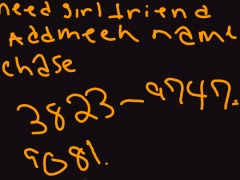 need girlfriend
Addmeeh name
chase
3823-9747.
9081.